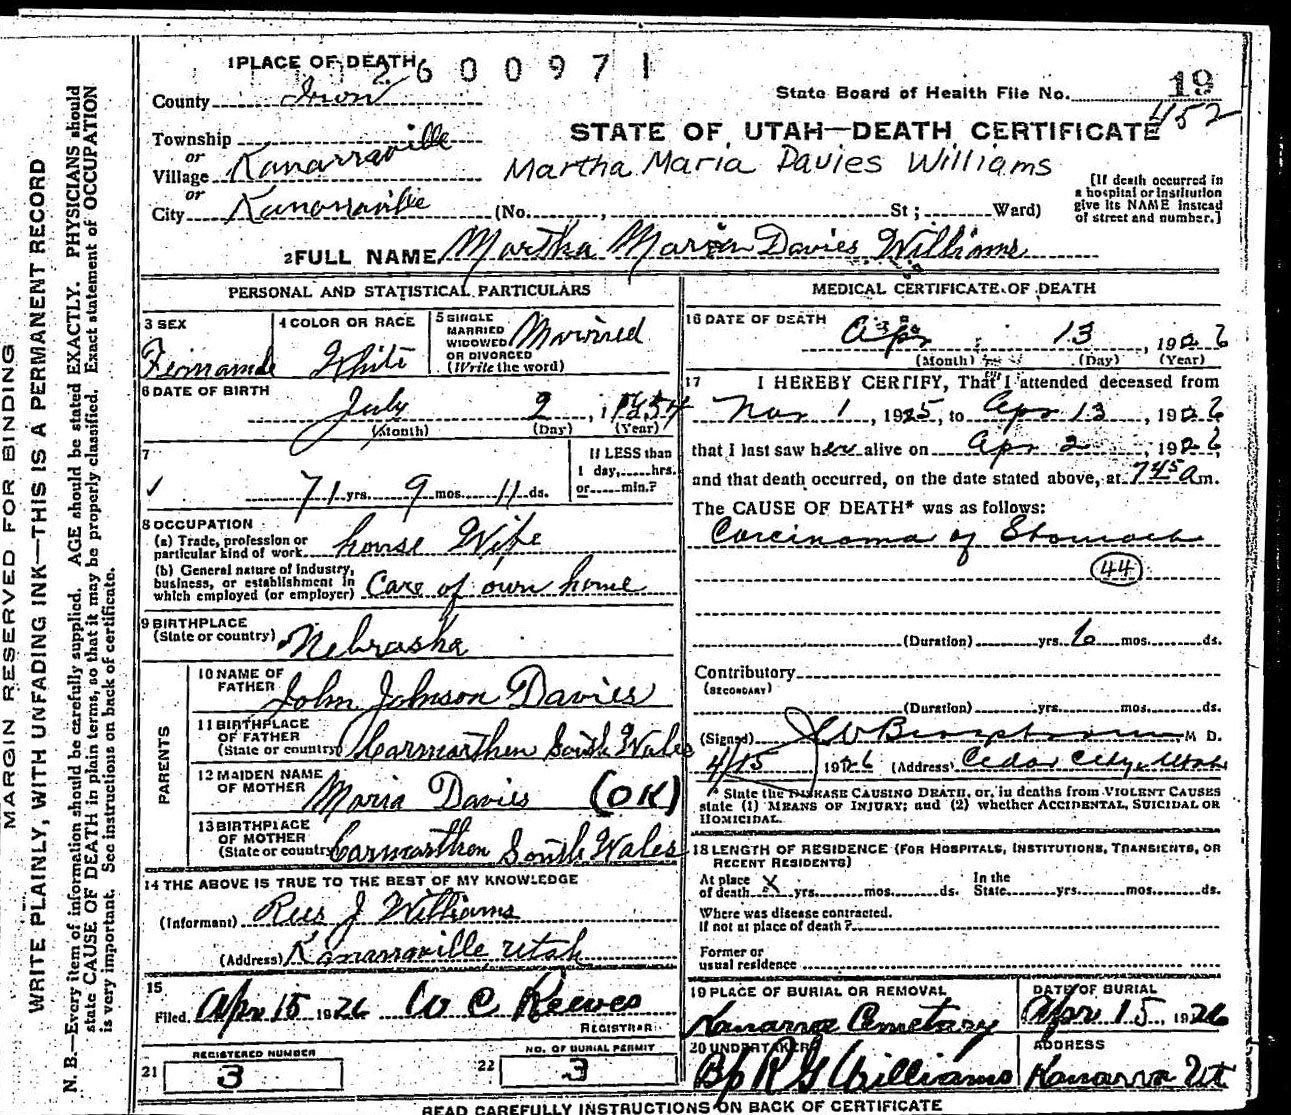 MARGIN RESERVED FOR BINDING
WRITE PLAINLY, WITH UNFADING INK—THIS IS A PERMANENT RECORD
N. B.—Every item of information should be carefully supplied. AGE should be stated EXACTLY. PHYSICIANS should
state CAUSE OF DEATH in plain terms, so that it may be properly classified. Exact statement of OCCUPATION
is very important. See instructions on back of certificate.
1 PLACE OF DEATH
2600971
County Iron
State Board of Health File No. 19
452
Township
or
Village Kanarraville
or
City Kanarraville (No. , St; Ward)
STATE OF UTAH—DEATH CERTIFICATE
Martha Maria Davies Williams
[If death occurred in
a hospital or institution
give its NAME instead
of street and number.]
2 FULL NAME Martha Maria Davies Williams
PERSONAL AND STATISTICAL PARTICULARS
3 SEX
4 COLOR OR RACE White
5 SINGLE
MARRIED
WIDOWED
OR DIVORCED
(Write the word)
Married
6 DATE OF BIRTH
July 2, 1854
(Month) (Day) (Year)
7
71 yrs. 9 mos. 11 ds.
If LESS than
1 day, hrs.
or min.?
8 OCCUPATION
(a) Trade, profession or
particular kind of work house Wife
(b) General nature of industry,
business, or establishment in
which employed (or employer) Care of own home
9 BIRTHPLACE
(State or country) Nebraska
PARENTS
10 NAME OF
FATHER John Johnson Davies
11 BIRTHPLACE
OF FATHER
(State or country) Carmarthen South Wales
12 MAIDEN NAME
OF MOTHER Maria Davies (OK)
13 BIRTHPLACE
OF MOTHER
(State or country) Carmarthen South Wales
14 THE ABOVE IS TRUE TO THE BEST OF MY KNOWLEDGE
(Informant) Rees J Williams
(Address) Kanarraville, Utah
15
Filed Apr 15 1926 W C Reeves
REGISTRAR
REGISTERED NUMBER
21 3
NO. OF BURIAL PERMIT
22 3
MEDICAL CERTIFICATE OF DEATH
16 DATE OF DEATH
Apr 13, 1926
(Month) (Day) (Year)
17 I HEREBY CERTIFY, That I attended deceased from
Nov 1, 1925, to Apr 13, 1926
that I last saw her alive on Apr 2, 1926,
and that death occurred, on the date stated above, at 7 45 Am.
The CAUSE OF DEATH* was as follows:
Carcinoma of Stomach
44
(Duration) yrs. 6 mos. ds.
Contributory
(SECONDARY)
(Duration) yrs. mos. ds.
(Signed) M D.
4/15 1926 (Address) Cedar City, Utah
* State the DISEASE CAUSING DEATH, or, in deaths from VIOLENT CAUSES
state (1) MEANS OF INJURY; and (2) whether ACCIDENTAL, SUICIDAL OR
HOMICIDAL.
18 LENGTH OF RESIDENCE (FOR HOSPITALS, INSTITUTIONS, TRANSIENTS, OR
RECENT RESIDENTS)
At place
of death X yrs. mos. ds.
In the
State yrs. mos. ds.
Where was disease contracted.
If not at place of death?
Former or
usual residence
19 PLACE OF BURIAL OR REMOVAL
Kanarra Cemetary
DATE OF BURIAL
Apr 15, 1926
20 UNDERTAKER
Bp R G Williams
ADDRESS
Kanarra Ut
READ CAREFULLY INSTRUCTIONS ON BACK OF CERTIFICATE